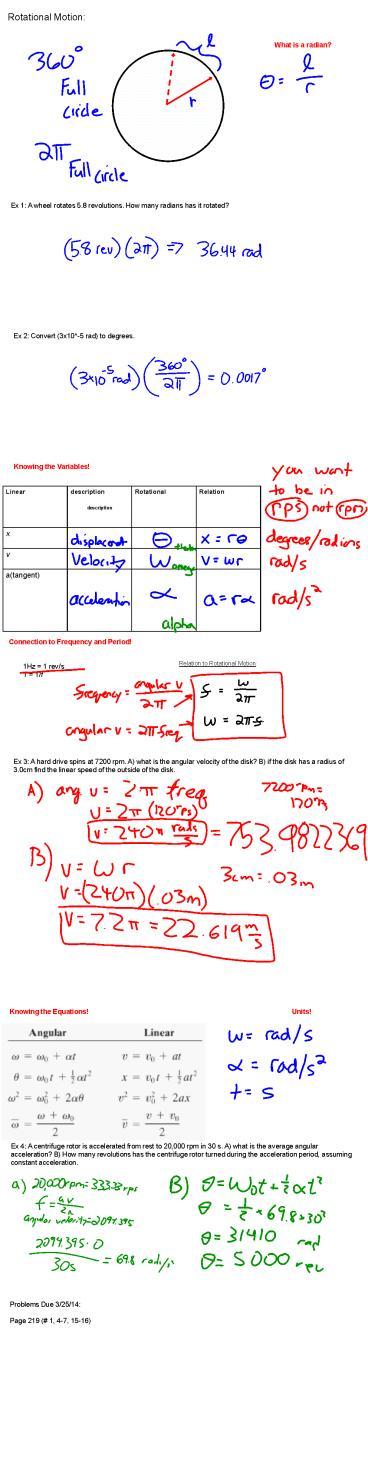 Rotational Motion:
360°
Full
circle
2π
Full circle
l
r
What is a radian?
θ = l/r
Ex 1: A wheel rotates 5.8 revolutions. How many radians has it rotated?
(5.8 rev)(2π) => 36.44 rad
Ex 2: Convert (3x10^-5 rad) to degrees.
(3×10^-5 rad)(360°/2π) = 0.0017°
Knowing the Variables!
you want
to be in
rps not rpm
Linear description Rotational Relation
description
x displacement θ theta x = rθ degrees/radians
v Velocity ω omega v = ωr rad/s
a(tangent) acceleration α alpha a = rα rad/s²
Connection to Frequency and Period!
1Hz = 1 rev/s
Relation to Rotational Motion
frequency = angular v/2π
f = ω/2π
angular v = 2π freq
ω = 2πf
Ex 3: A hard drive spins at 7200 rpm. A) what is the angular velocity of the disk? B) if the disk has a radius of
3.0cm find the linear speed of the outside of the disk.
A) ang v = 2π freq
7200rpm=
120rps
v = 2π(120rps)
v = 240π rads/s = 753.9822369
B) v = ωr
3cm = .03m
v = (240π)(.03m)
v = 7.2π = 22.619 m/s
Knowing the Equations!
Units!
Angular Linear
ω = ω₀ + αt v = v₀ + at
θ = ω₀t + ½αt² x = v₀t + ½at²
ω² = ω₀² + 2αθ v² = v₀² + 2ax
ω̅ = (ω + ω₀)/2 v̅ = (v + v₀)/2
ω = rad/s
α = rad/s²
t = s
Ex 4: A centrifuge rotor is accelerated from rest to 20,000 rpm in 30 s. A) what is the average angular
acceleration? B) How many revolutions has the centrifuge rotor turned during the acceleration period, assuming
constant acceleration.
a) 20,000rpm = 333.33 rps
f = av/2π
angular velocity = 2094.395
2094.395 - 0
30s
= 69.8 rad/s²
B) θ = ω₀t + ½αt²
θ = ½ × 69.8 × 30²
θ = 31410 rad
θ = 5000 rev
Problems Due 3/25/14:
Page 219 (# 1, 4-7, 15-16)